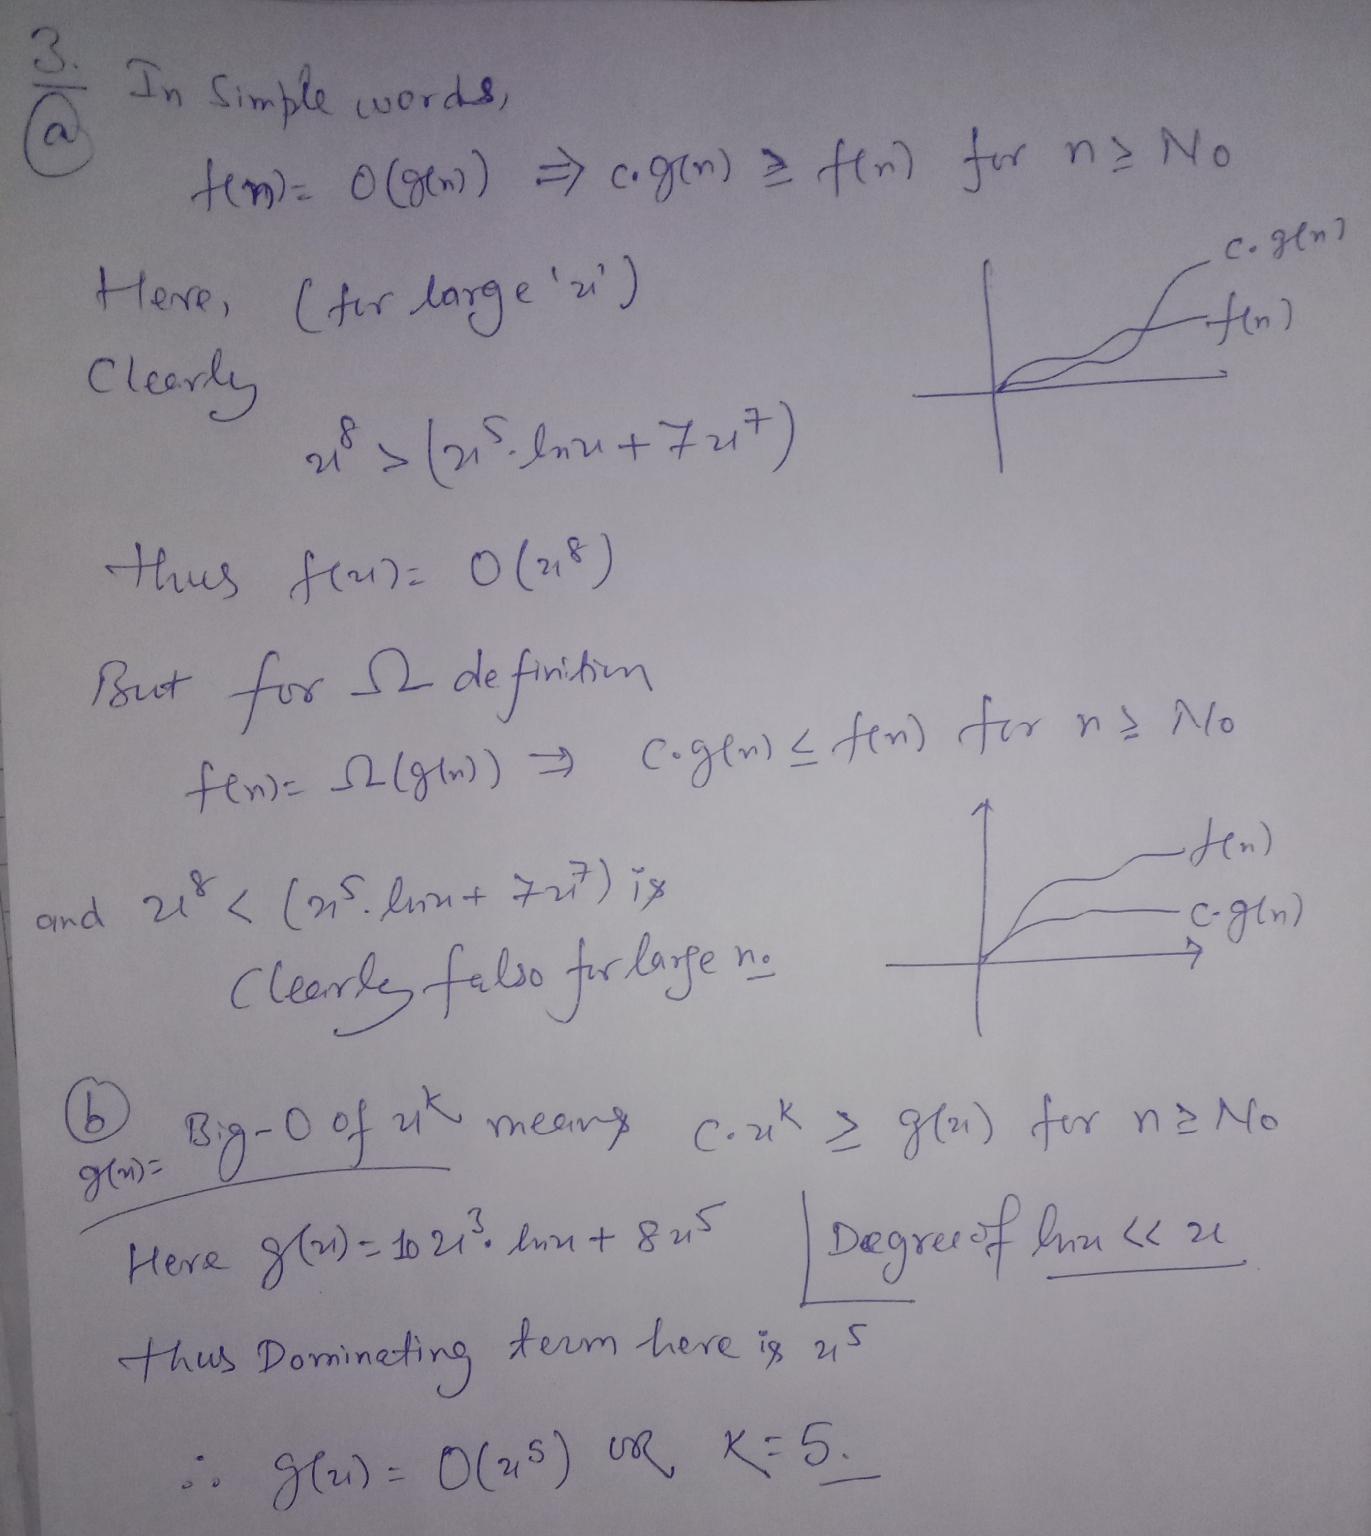 3.
(a) In Simple words,
f(n) = O(g(n)) ⇒ c.g(n) ≥ f(n) for n ≥ No
c.g(n)
Here, (for large 'x')
f(n)
Clearly
x⁸ > (x⁵. lnx + 7x⁷)
thus f(x) = O(x⁸)
But for Ω definition
f(n) = Ω(g(n)) ⇒ c.g(n) ≤ f(n) for n ≥ No
f(n)
and x⁸ < (x⁵. lnx + 7x⁷) is
c.g(n)
Clearly false for large no
(b) g(x) = Big-O of x^k means c.x^k ≥ g(x) for n ≥ No
Here g(x) = 10x³. lnx + 8x⁵ | Degree of lnx << x
thus Dominating term here is x⁵
∴ g(x) = O(x⁵) OR K = 5.